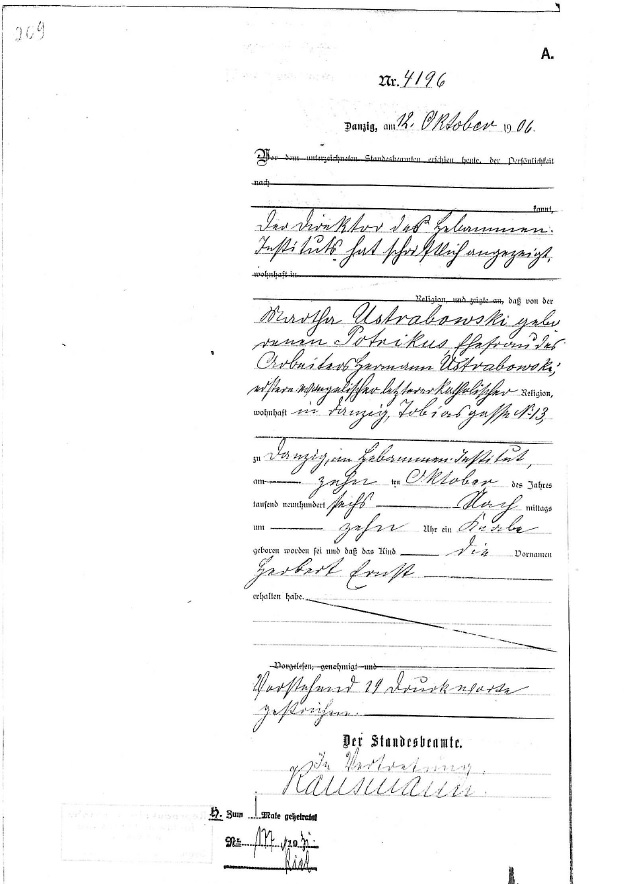 269
A.
Nr. 4196
Danzig, am 12. Oktober 1906.
Vor dem unterzeichneten Standesbeamten erschien heute, der Persönlichkeit
nach
kannt,
Der Direktor des Hebammen-
Instituts hat schriftlich angezeigt,
wohnhaft in
Religion, und zeigte an, daß von der
Martha Ustrabowski gebo
renen Potrikus Ehefrau des
Arbeiters Hermann Ustrabowski,
erstere evangelischer letzterer katholischer Religion,
wohnhaft in Danzig, Tobiasgasse No 13,
zu Danzig, im Hebammen-Institut,
am zehn ten Oktober des Jahres
tausend neunhundert sechs Nach mittags
um zehn Uhr ein Knabe
geboren worden sei und daß das Kind die Vornamen
Herbert Ernst
erhalten habe.
Vorgelesen, genehmigt und
Vorstehend 19 Druckworte
gestrichen.
Der Standesbeamte.
In Vertretung.
H. Zum 1 Male geheiratet
Nr. 177